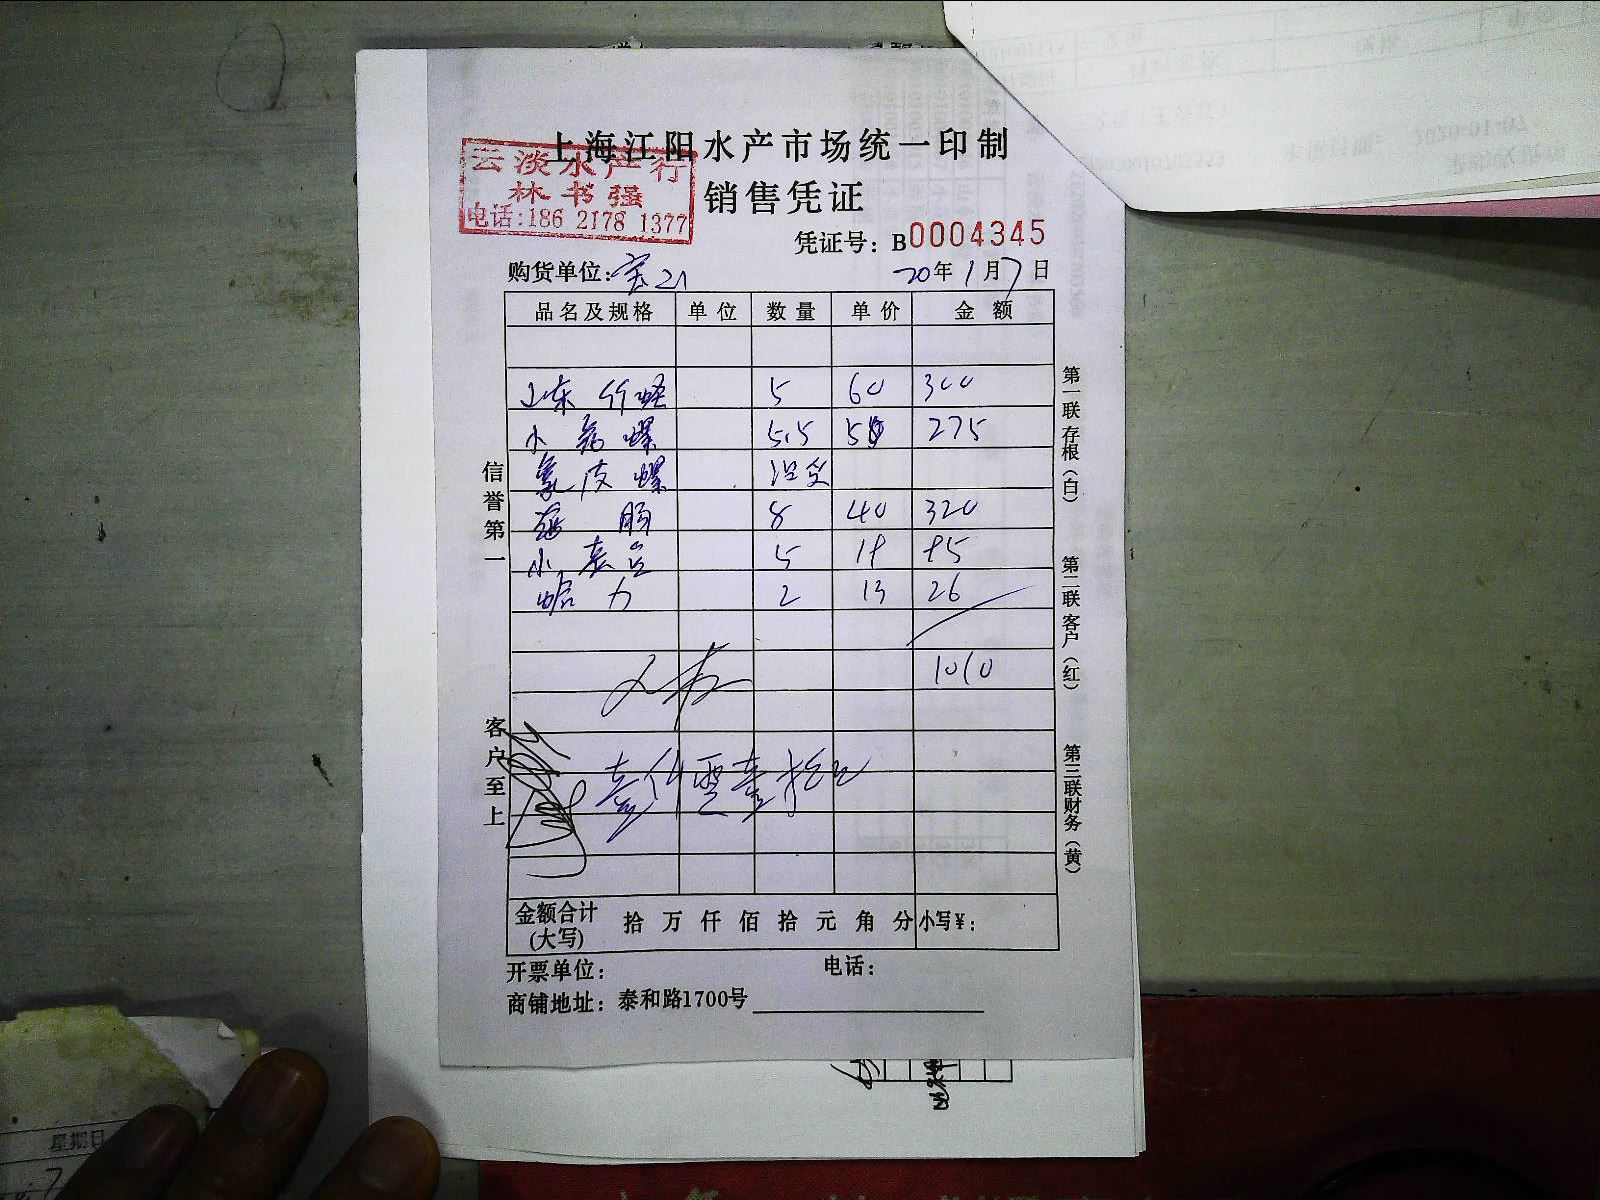 上海江阳水产市场统一印制
云淡水产行
林书强
电话:186 2178 1377
销售凭证
凭证号: B0004345
购货单位:
20年1月7日
品名及规格 单位 数量 单价 金额
山东 竹蛏 5 60 300
小 螺 5.5 50 275
象皮螺 没发
海肠 8 40 320
小 5 19 95
蛤力 2 13 26
1010
信誉第一
客户至上
第一联存根(白)
第二联客户(红)
第三联财务(黄)
金额合计(大写) 拾 万 仟 佰 拾 元 角 分 小写¥:
开票单位: 电话:
商铺地址: 泰和路1700号
星期日
7